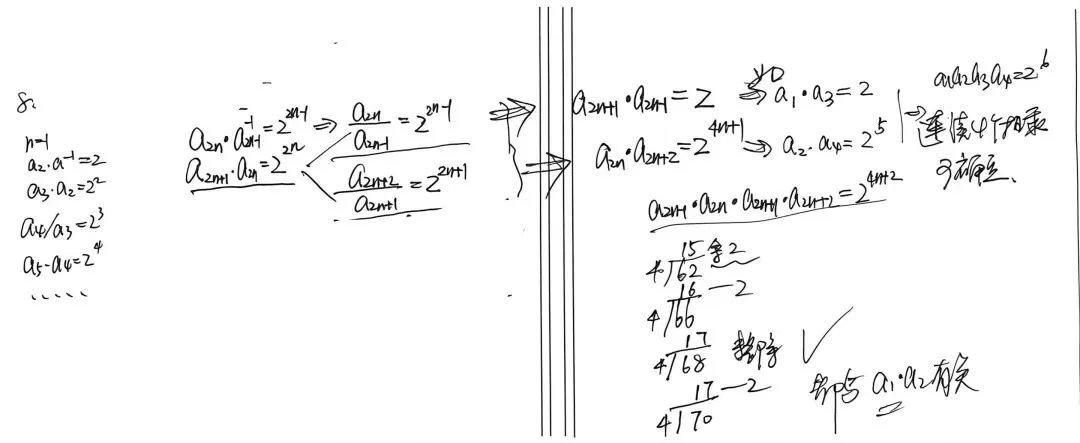 8.
n=1
a₂·a⁻¹=2
a₃·a₂=2²
a₄/a₃=2³
a₅-a₄=2⁴
.....
a₂ₙ·a₂ₙ₋₁⁻¹=2²ⁿ⁻¹ ⇒ a₂ₙ/a₂ₙ₋₁=2²ⁿ⁻¹
a₂ₙ₊₁·a₂ₙ=2²ⁿ
a₂ₙ₊₂/a₂ₙ₊₁=2²ⁿ⁺¹
a₂ₙ₊₁·a₂ₙ₋₁=2 ⇒ a₁·a₃=2
a₂ₙ·a₂ₙ₊₂=2⁴ⁿ⁺¹ ⇒ a₂·a₄=2⁵
a₁a₂a₃a₄=2⁶
⇒连续4个相乘
可确定、
a₂ₙ₋₁·a₂ₙ·a₂ₙ₊₁·a₂ₙ₊₂=2⁴ⁿ⁺²
15 余2
4/62
16 —2
4/66
17
4/68 整除 ✓
17 —2
4/70
即与 a₁·a₂有关